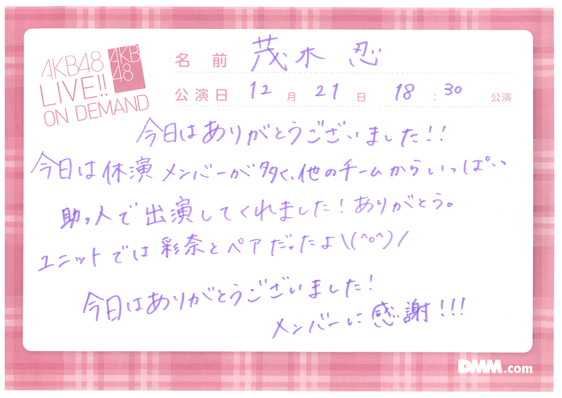 AKB48
LIVE!!
ON DEMAND
AKB
48
名前 茂木 忍
公演日 12月21日 18:30 公演
今日はありがとうございました!!
今日は休演メンバーが多く、他のチームからいっぱい
助っ人で出演してくれました!ありがとう。
ユニットでは彩奈とペアだったよ\(^o^)/
今日はありがとうございました!
メンバーに感謝!!!
DMM.com